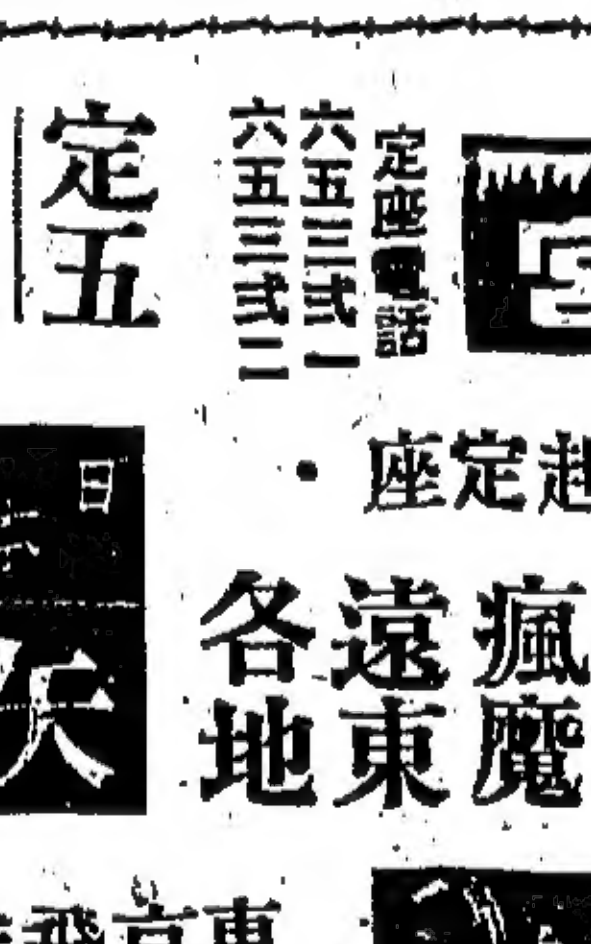 定座電話
六五三弍一
六五三弍二
定五
趕定座
瘋魔
遠東
各地
日
天